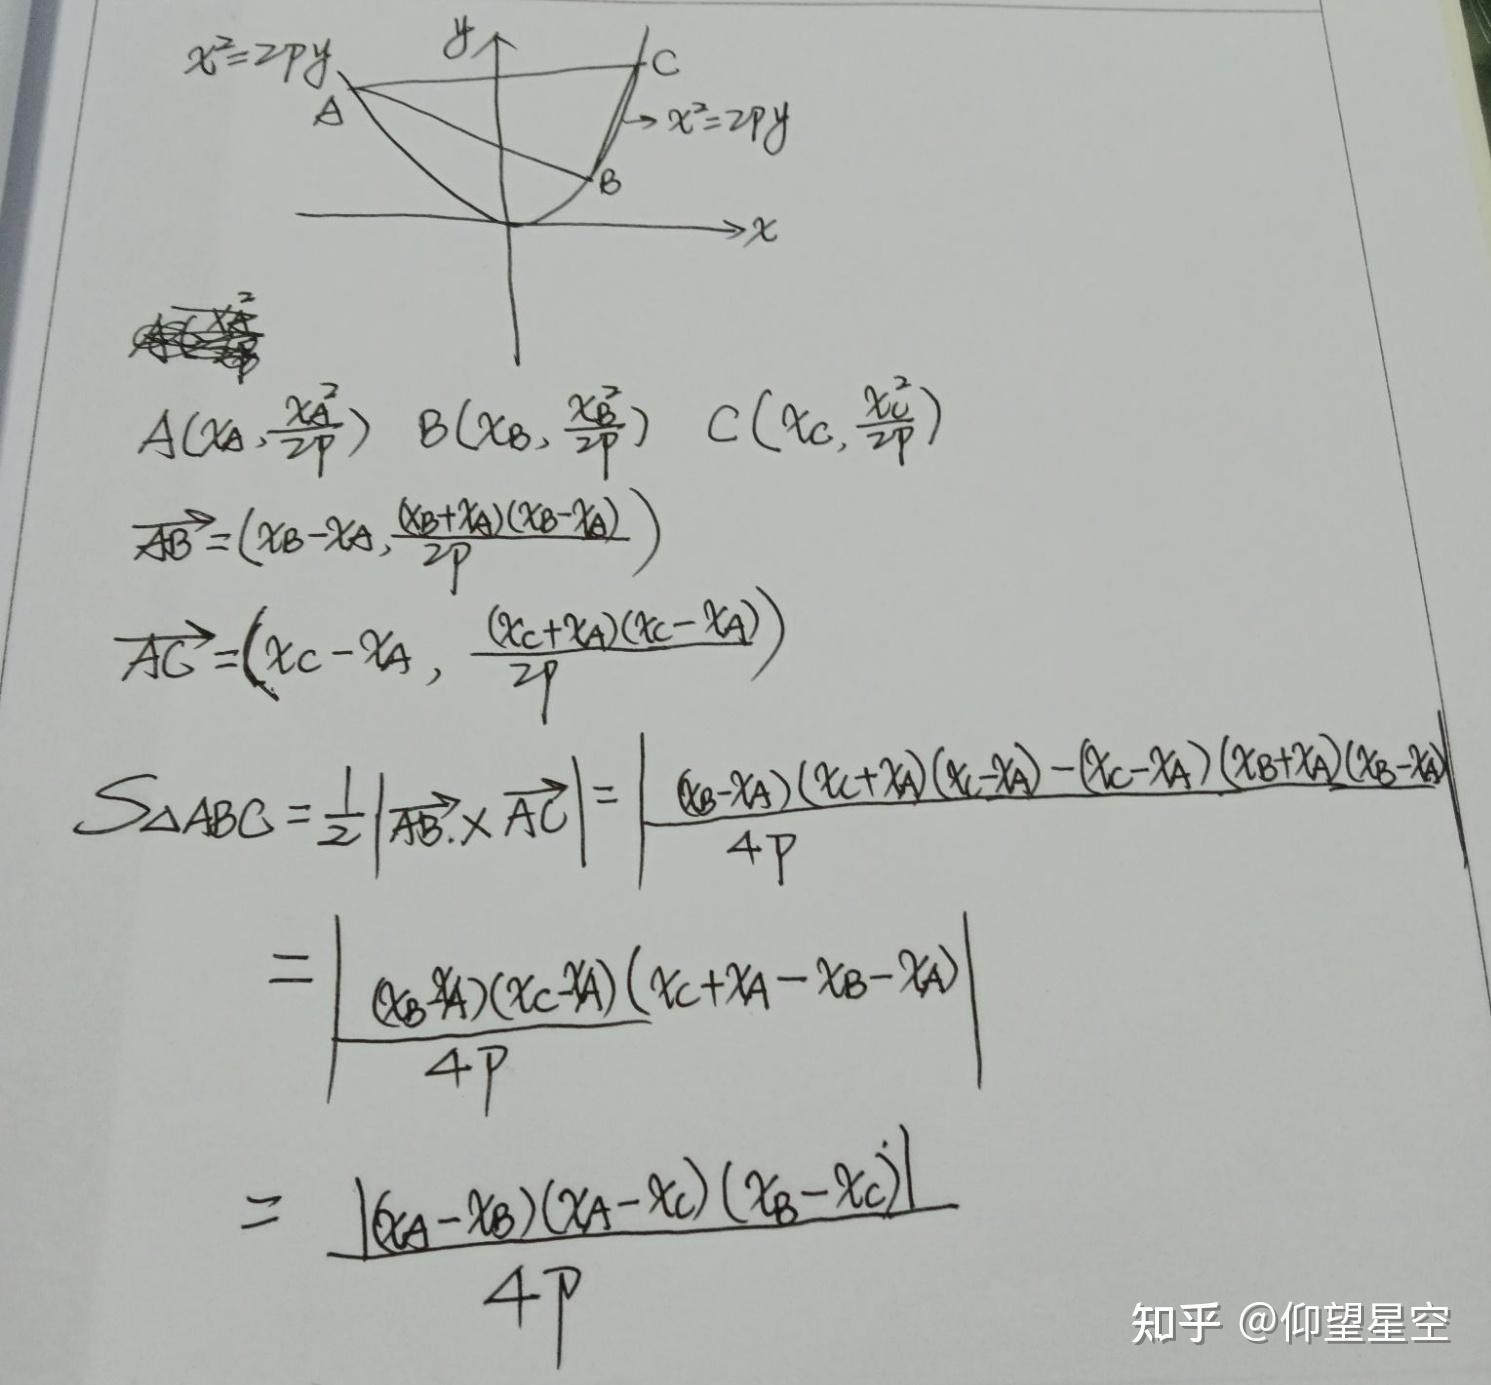 x²=2py
y
C
A
→ x²=2py
B
x
A(x_A, x_A²/2p) B(x_B, x_B²/2p) C(x_C, x_C²/2p)
AB→=(x_B-x_A, (x_B+x_A)(x_B-x_A)/2p)
AC→=(x_C-x_A, (x_C+x_A)(x_C-x_A)/2p)
S△ABC=1/2|AB→×AC→|=|((x_B-x_A)(x_C+x_A)(x_C-x_A)-(x_C-x_A)(x_B+x_A)(x_B-x_A))/4p|
=|(x_B-x_A)(x_C-x_A)(x_C+x_A-x_B-x_A)/4p|
=|(x_A-x_B)(x_A-x_C)(x_B-x_C)|/4p
知乎 @仰望星空